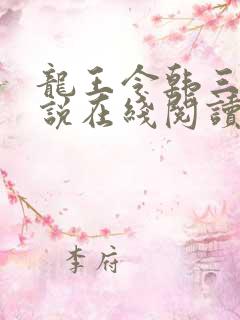 龍王令韩三
說在綫閱讀
李府